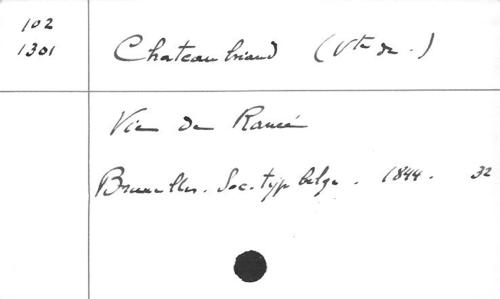 102
1301
Chateaubriand (Vte de.)
Vie de Rancé
Bruxelles. Soc. typ belge. 1844. 32